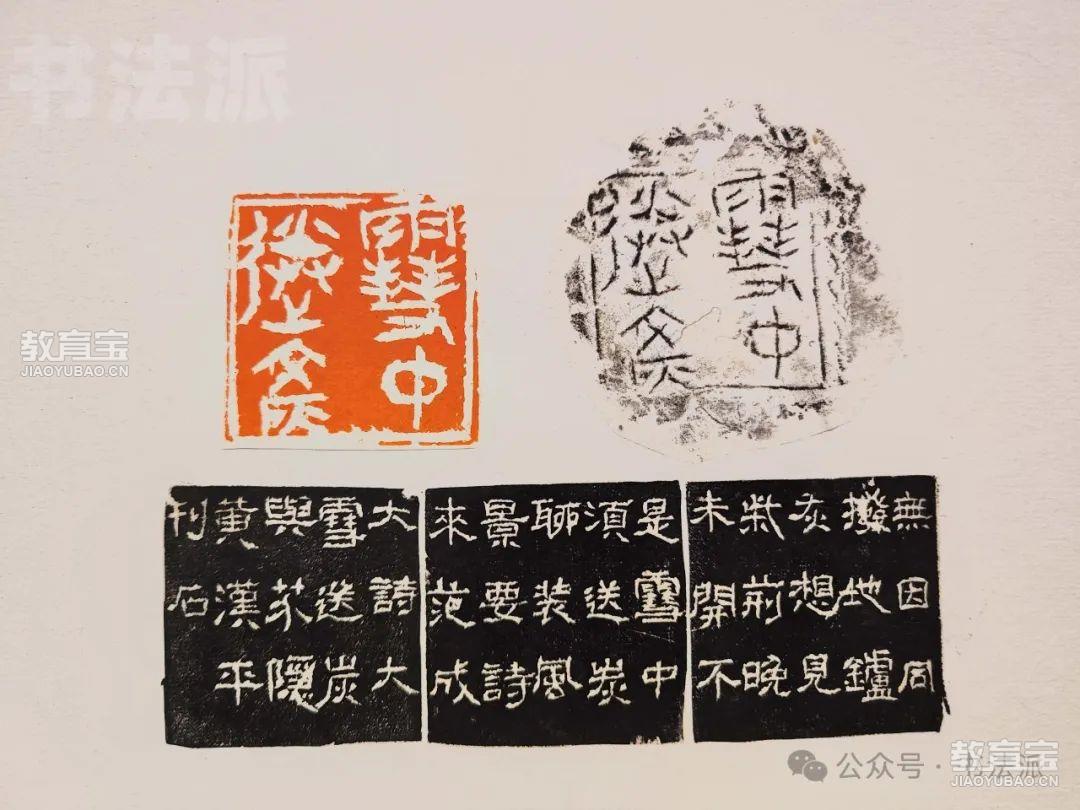 书法派
雪中
送炭
雪中
送炭
無因同
撥地鑪
灰想見
柴荊晚
未開不
是雪中
須送炭
聊装風
景要詩
來范成
大詩大
雪送炭
與芥隱
黄漢平
刊石
教育宝
JIAOYUBAO.CN
公众号 · 书法派
教育宝
JIAOYUBAO.CN